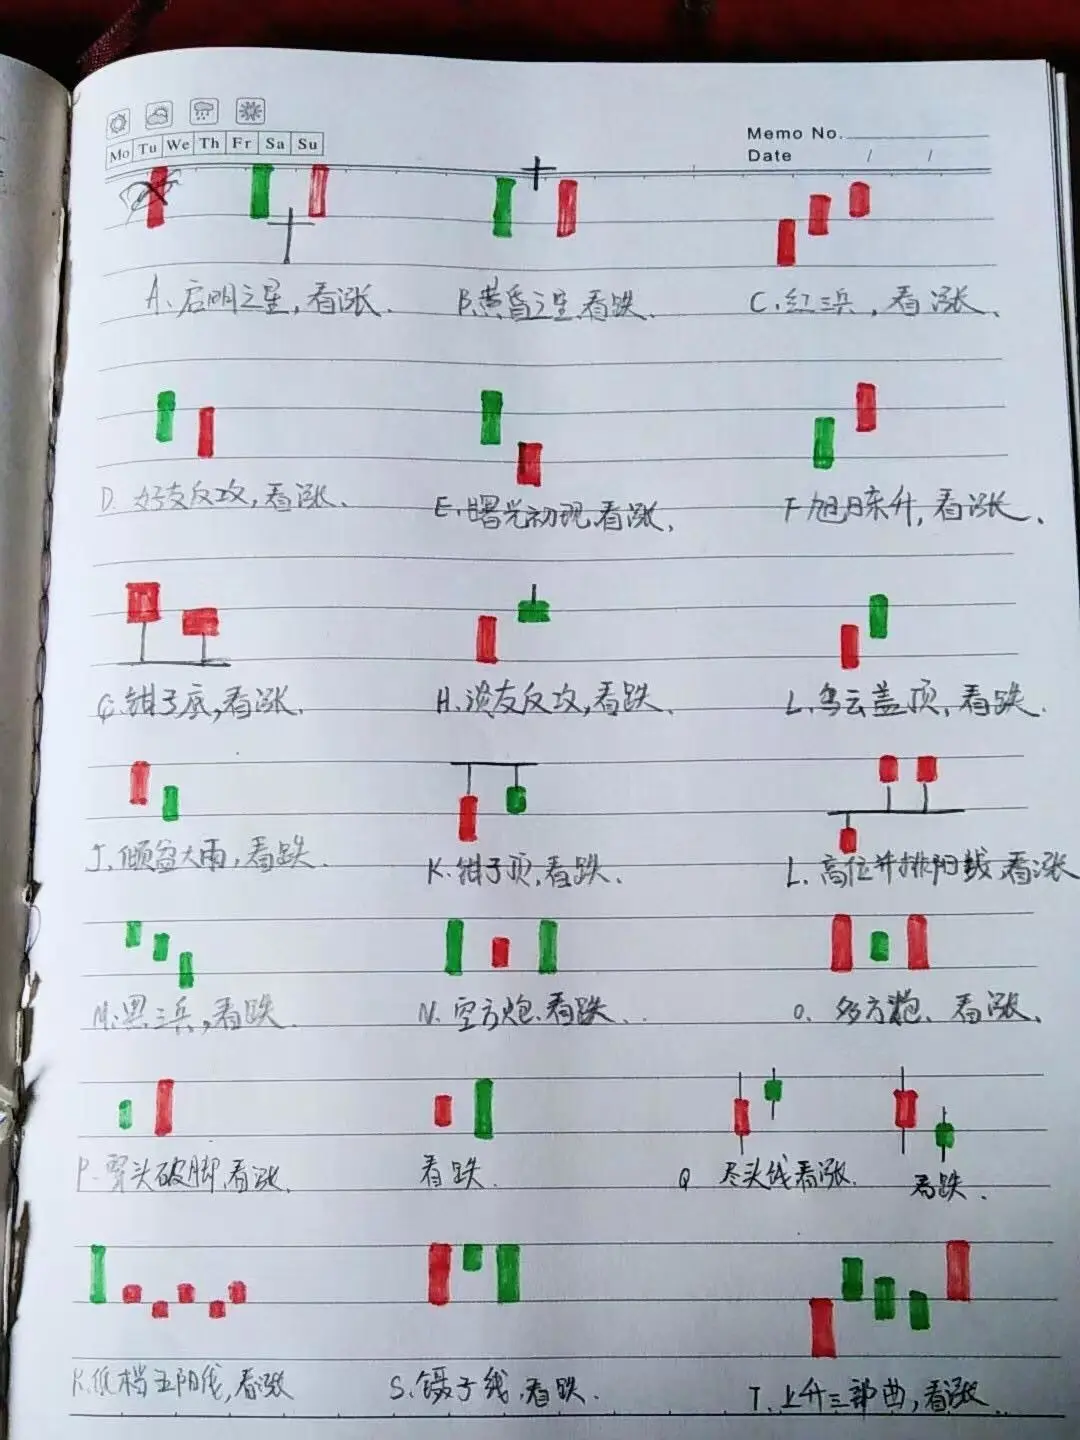 Mo Tu We Th Fr Sa Su
Memo No.
Date / /
A、启明之星，看涨．
B、黄昏之星，看跌．
C、红三兵，看涨、
D、好友反攻，看涨、
E、曙光初现，看涨、
F 旭日东升，看涨、
G、钳子底，看涨、
H、淡友反攻，看跌、
L、乌云盖顶，看跌、
J、倾盆大雨，看跌．
K、钳子顶，看跌、
L、高位并排阳线，看涨
M、黑三兵，看跌．
N、空方炮、看跌、．
O、多方炮、看涨、
P、穿头破脚，看涨、
看跌．
Q 尽头线看涨．
看跌．
R、低档五阳线，看涨
S、镊子线，看跌．
T、上升三部曲，看涨．